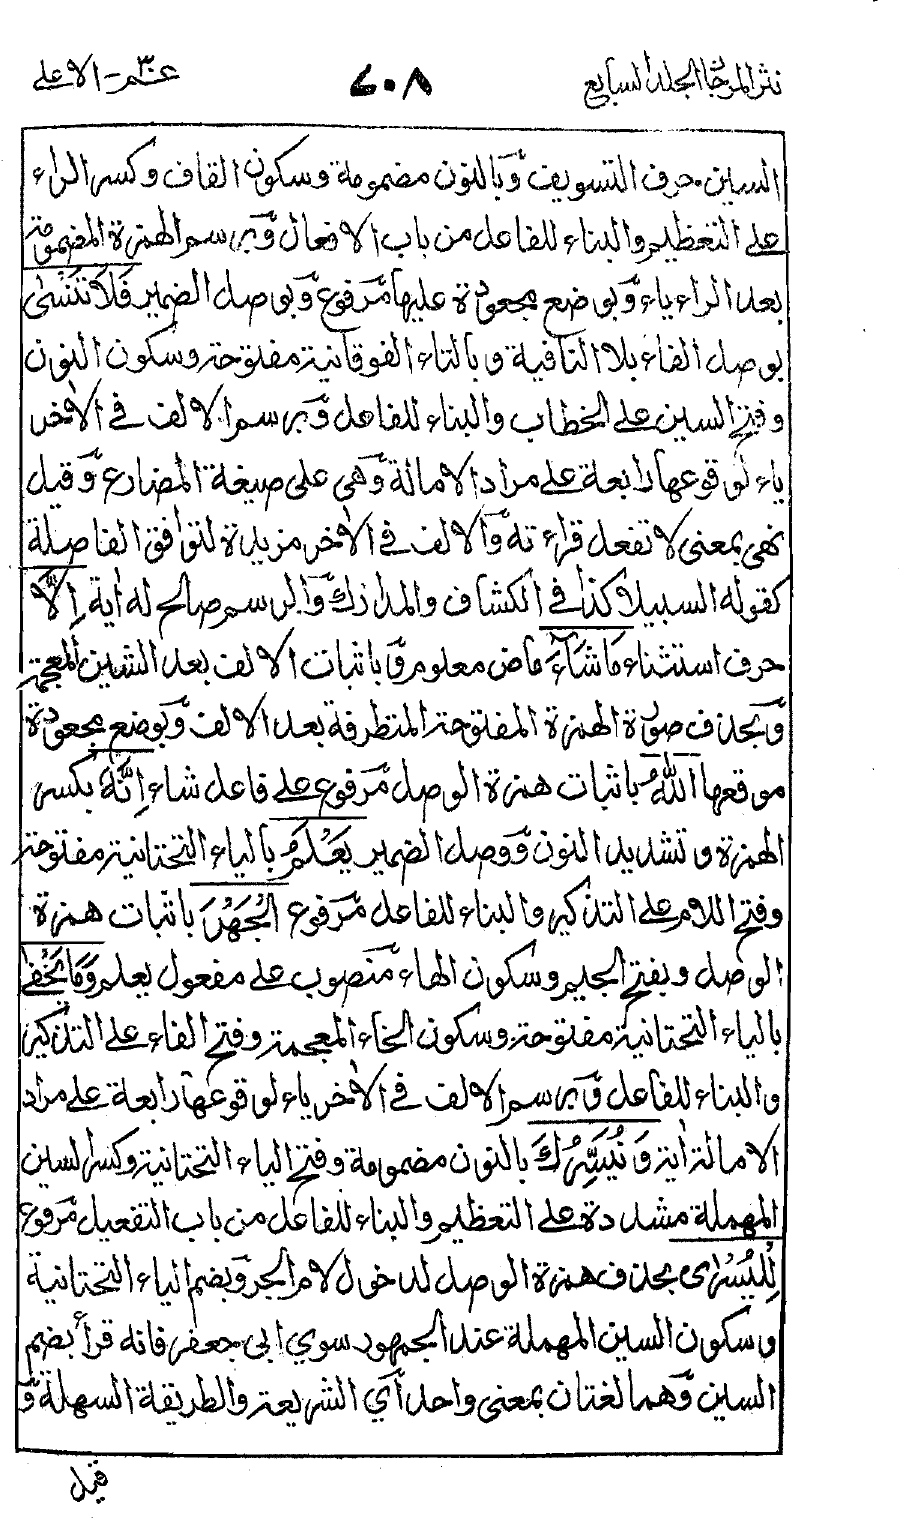 نثر المرجان المجلد السابع
٧٠٨
عمّ - الاعلى
السين حرف التسويف وّبالنون مضمومة وسكون القاف وكسر الراء
على التعظيم والبناء للفاعل من باب الافعال وّبرسم الهمزة المضمومة
بعد الراء ياء وّبوضع مجعودة عليها مّرفوع وّبوصل الضمير فَلَا تَنْسٰى
بوصل الفاء بلا النافية وبالتاء الفوقانية مفتوحة وسكون النون
وفتح السين على الخطاب والبناء للفاعل وّبرسم الالف في الاٰخر
ياء لوقوعها رابعة على مراد الامالة وّهي على صيغة المضارع وّقيل
نهي بمعنى لا تفعل قراءته وّالالف في الاٰخر مزيدة لتوافق الفاصلة
كقوله السبيلا كذا في الكشاف والمدارك وّالرسم صالح له اٰية اِلَّا
حرف استثناء مَا شَآءَ ماض معلوم وّباثبات الالف بعد الشين المعجمة
وّبحذف صورة الهمزة المفتوحة المتطرفة بعد الالف وّبوضع مجعودة
موقعها اللّٰهُ باثبات همزة الوصل مّرفوع على فاعل شاء اِنَّهٗ بكسر
الهمزة وتشديد النون وّوصل الضمير يَعْلَمُ بالياء التحتانية مفتوحة
وفتح اللام على التذكير والبناء للفاعل مّرفوع الْجَهْرَ باثبات همزة
الوصل وبفتح الجيم وسكون الهاء مّنصوب على مفعول يعلم وَمَا يَخْفٰى
بالياء التحتانية مفتوحة وسكون الخاء المعجمة وفتح الفاء على التذكير
والبناء للفاعل وّبرسم الالف في الاٰخر ياء لوقوعها رابعة على مراد
الامالة اٰية وَنُيَسِّرُكَ بالنون مضمومة وفتح الياء التحتانية وكسر السين
المهملة مشددة على التعظيم والبناء للفاعل من باب التفعيل مّرفوع
لِلْيُسْرٰى بحذف همزة الوصل لدخول لام الجر وّبضم الياء التحتانية
وسكون السين المهملة عند الجمهور سوى ابي جعفر فانه قرأ بضم
السين وّهما لغتان بمعنى واحد اي الشريعة والطريقة السهلة وّ
قيل